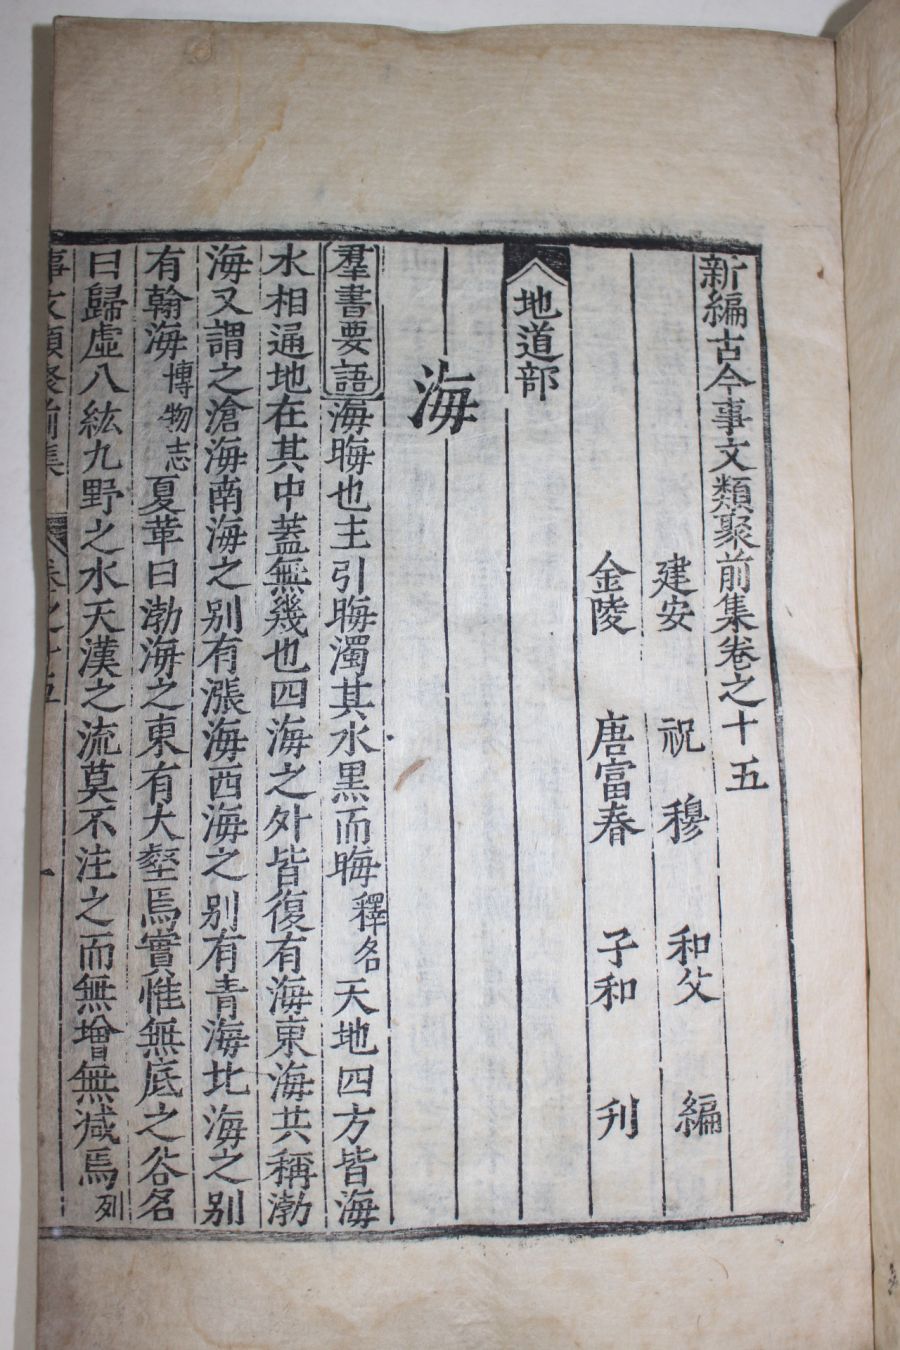 新編古今事文類聚前集卷之十五
建安 祝穆 和父 編
金陵 唐富春 子和 刋
地道部
海
羣書要語海晦也主引晦濁其水黒而晦釋名天地四方皆海
水相通地在其中蓋無幾也四海之外皆復有海東海共稱渤
海又謂之滄海南海之别有漲海西海之别有青海北海之别
有翰海博物志夏革曰渤海之東有大壑焉實惟無底之谷名
曰歸虛八紘九野之水天漢之流莫不注之而無增無減焉列
事文類聚前集 卷之十五 一